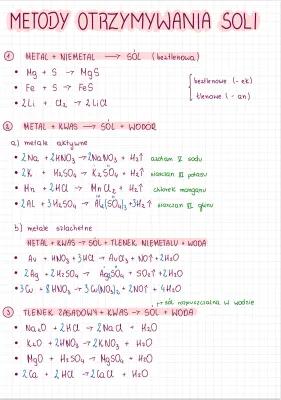 METODY OTRZYMYWANIA SOLI
① METAL + NIEMETAL → SÓL (beztlenowa)
• Mg + S → MgS
beztlenowe (-ek)
• Fe + S → FeS
tlenowe (-an)
• 2Li + Cl₂ → 2LiCl
② METAL + KWAS → SÓL + WODÓR
a) metale aktywne
• 2Na + 2HNO₃ → 2NaNO₃ + H₂↑ azotan V sodu
• 2K + H₂SO₄ → K₂SO₄ + H₂↑ siarczan VI potasu
• Mn + 2HCl → MnCl₂ + H₂↑ chlorek manganu
• 2Al + 3H₂SO₄ → Al₂(SO₄)₃ + 3H₂↑ siarczan VI glinu
b) metale szlachetne
METAL + KWAS → SÓL + TLENEK NIEMETALU + WODA
• Au + HNO₃ + 3HCl → AuCl₃ + NO↑ + 2H₂O
• 2Ag + 2H₂SO₄ → Ag₂SO₄ + SO₂↑ + 2H₂O
• 3Cu + 8HNO₃ → 3Cu(NO₃)₂ + 2NO↑ + 4H₂O
→ sól rozpuszczalna w wodzie
③ TLENEK ZASADOWY + KWAS → SÓL + WODA
• Na₂O + 2HCl → 2NaCl + H₂O
• K₂O + 2HNO₃ → 2KNO₃ + H₂O
• MgO + H₂SO₄ → MgSO₄ + H₂O